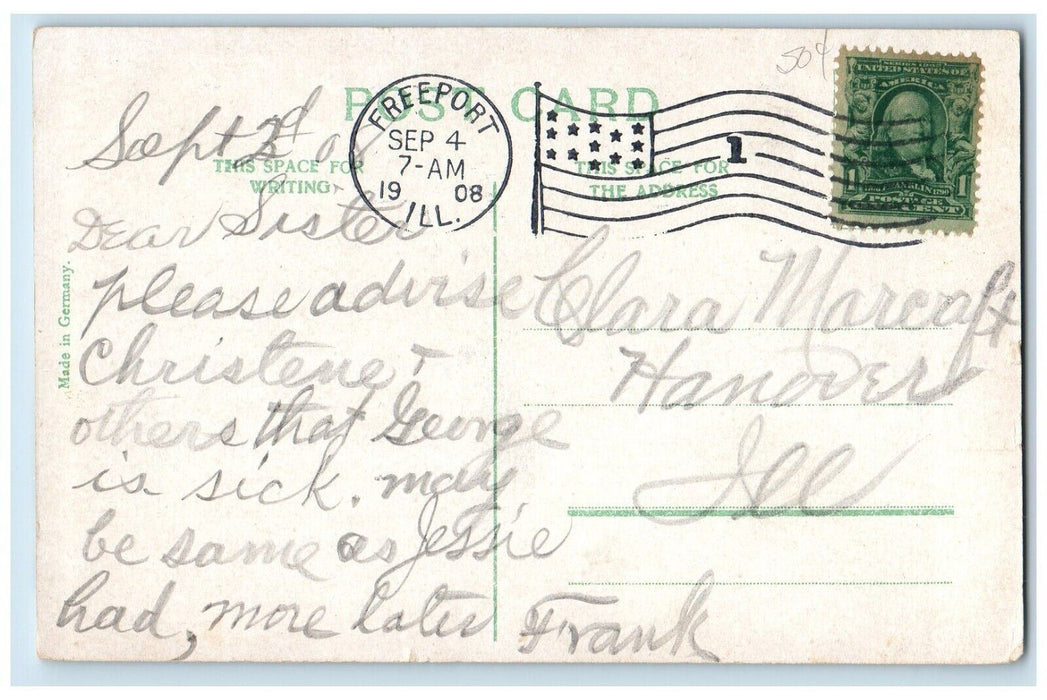 50¢
POST CARD
FREEPORT
SEP 4
7-AM
19 08
ILL.
1
SERIES 1902
UNITED STATES OF
AMERICA
1 FRANKLIN 1790 1
POSTAGE
ONE CENT
THIS SPACE FOR
WRITING
THIS SPACE FOR
THE ADDRESS
Made in Germany.
Sept 3d 08
Dear Sister
please advise
Christene +
others that George
is sick. may
be same as Jessie
had, more later
Frank
Clara Marcaft
Hanover
Ill